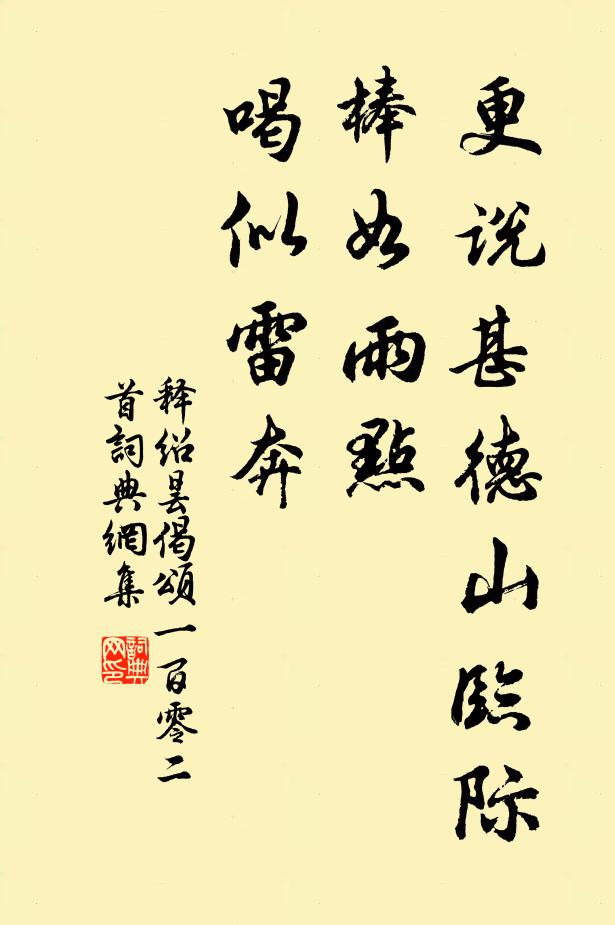 更说甚德山臨际
棒如雨點
喝似雷奔
释绍昙偈頌一百零二
首詞典網集
詞典
网印